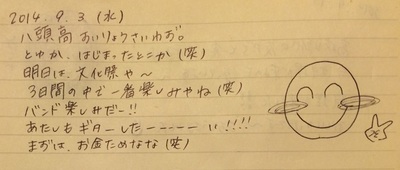 2014.9.3(水)
八頭高おいりょうさいわお。
とゆか、はじまったとこか(笑)
明日は、文化祭や〜
3日間の中で一番楽しみやね(笑)
バンド楽しみだー!!
あたしもギターしたーーーーーい!!!!
まずは、お金ためなな(笑)